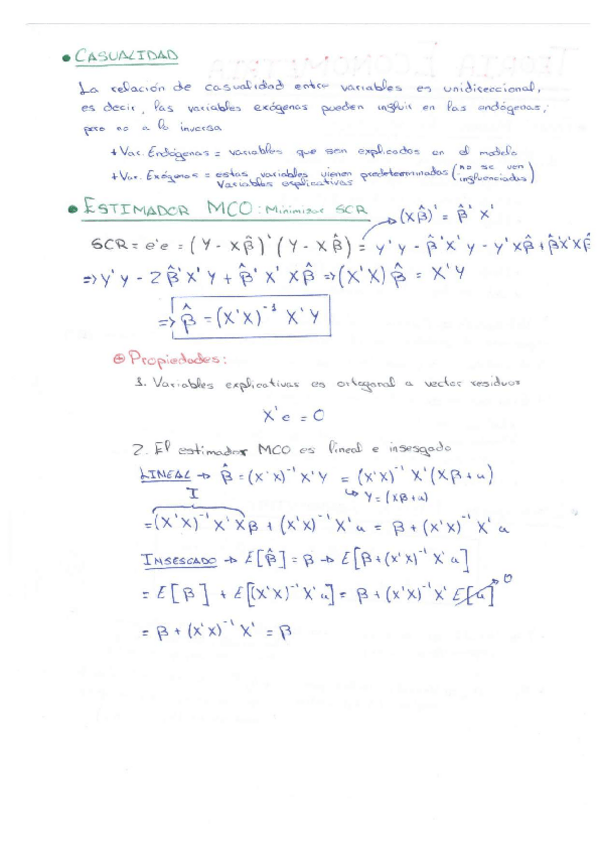 • CASUALIDAD
La relación de casualidad entre variables es unidireccional,
es decir, las variables exógenas pueden influir en las endógenas,
pero no a lo inversa
+ Var. Endógenas = variables que son explicadas en el modelo
+ Var. Exógenas = estas variables vienen predeterminadas (no se ven influenciadas)
Variables explicativas
• ESTIMADOR MCO: Minimizar SCR
(Xβ̂)' = β̂'X'
SCR = e'e = (Y - Xβ̂)'(Y - Xβ̂) = Y'Y - β̂'X'Y - Y'Xβ̂ + β̂'X'Xβ̂
=> Y'Y - 2β̂'X'Y + β̂'X'Xβ̂ => (X'X)β̂ = X'Y
=> β̂ = (X'X)⁻¹ X'Y
⊕ Propiedades:
1. Variables explicativas es ortogonal a vector residuos
X'e = 0
2. El estimador MCO es lineal e insesgado
LINEAL → β̂ = (X'X)⁻¹X'Y = (X'X)⁻¹X'(Xβ+u)
I
↳ Y = (Xβ+u)
= (X'X)⁻¹X'Xβ + (X'X)⁻¹X'u = β + (X'X)⁻¹X'u
INSESGADO → E[β̂] = β → E[β+(X'X)⁻¹X'u]
= E[β] + E[(X'X)⁻¹X'u] = β + (X'X)⁻¹X'E[u] 0
= β + (X'X)⁻¹X' = β